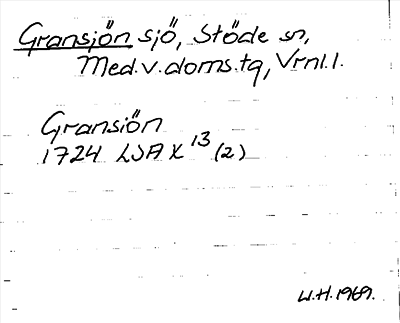 Gransjön sjö, Stöde sn,
Med.v.doms.tg, Vrnl.l.
Gransiön
1724 LSA X 13 (2)
W.H. 1969.